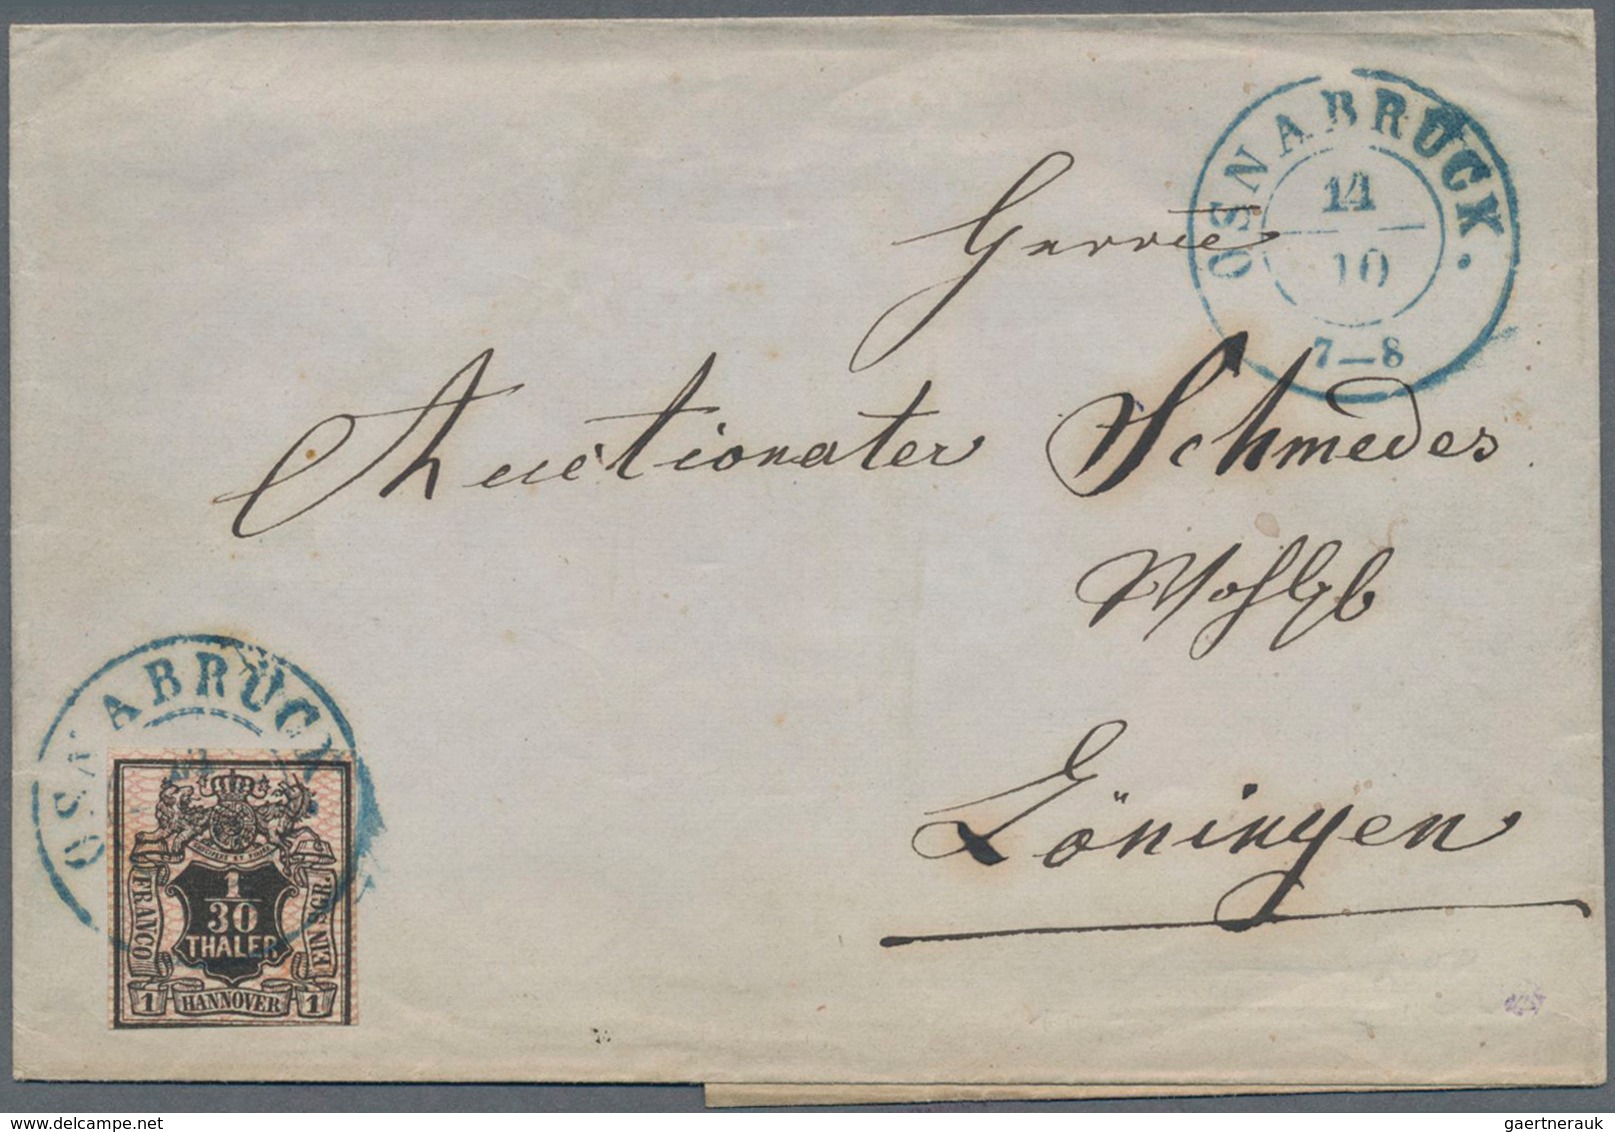 OSNABRÜCK.
14
10
7—8
Herrn
Auctionator Schmedes
Wohlgb
Löningen
OSNABRÜCK.
1
30
THALER
FRANCO
EIN SGR.
1 HANNOVER 1
gaertnerauk